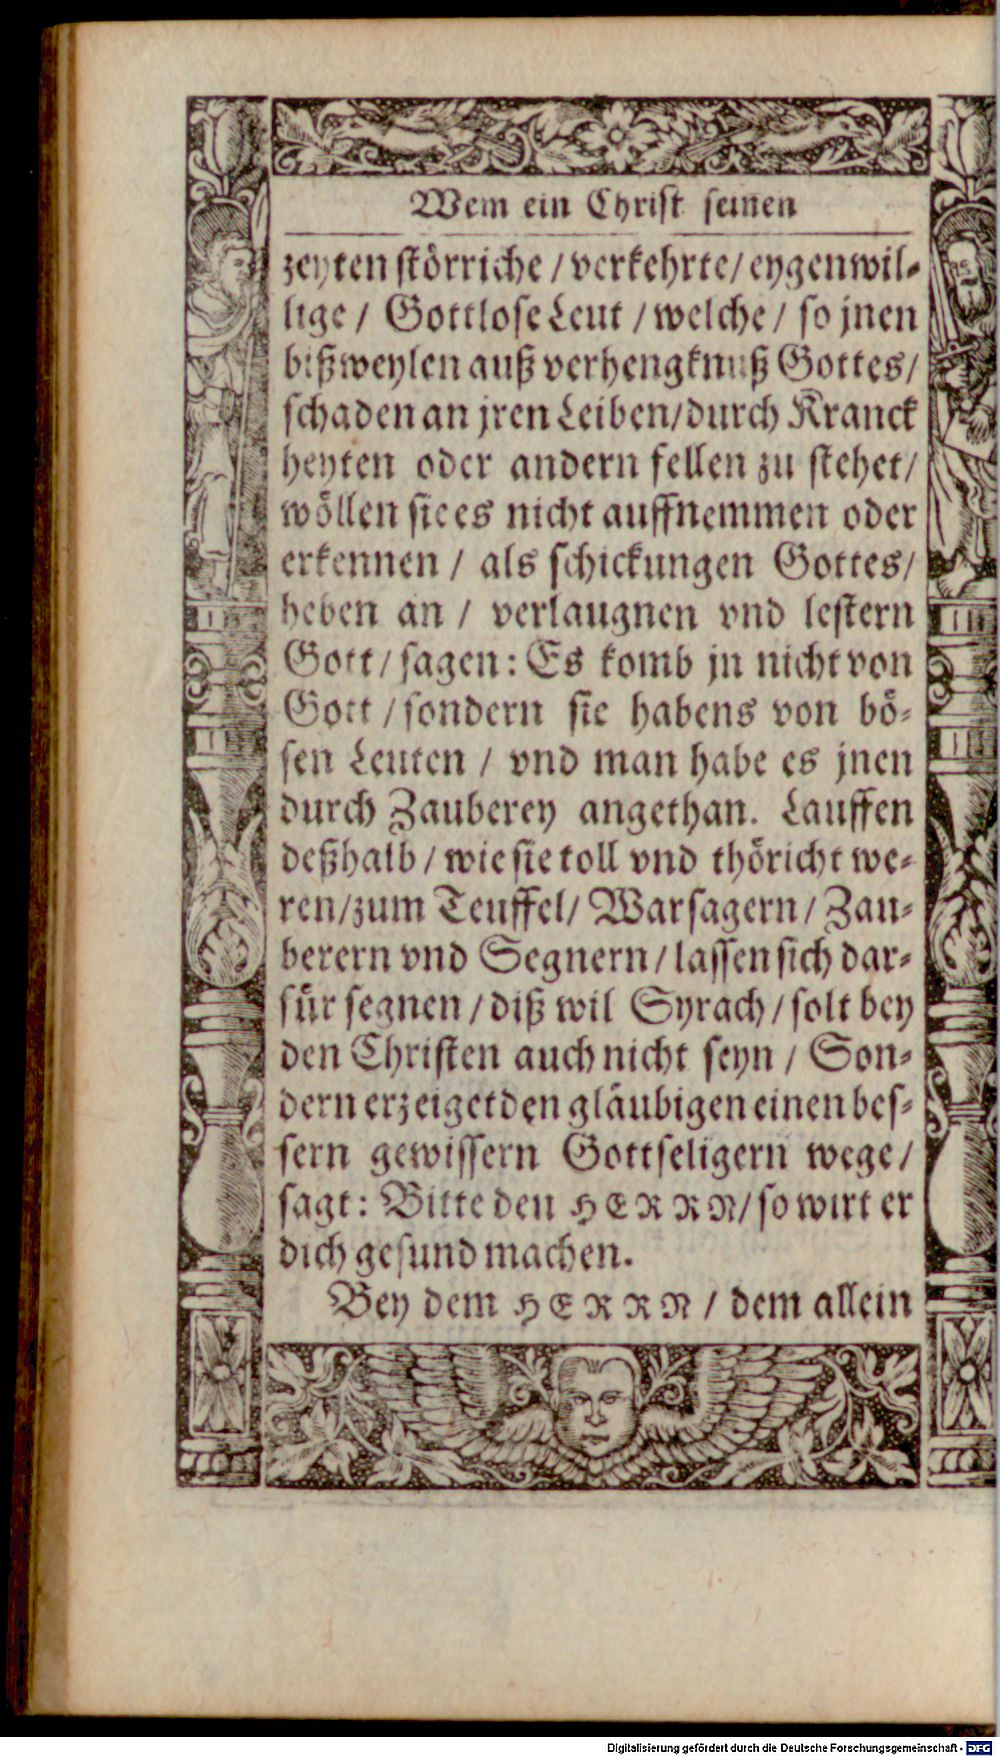 Wem ein Christ seinen
zeyten störriche / verkehrte / eygenwil-
lige / Gottlose Leut / welche / so jnen
bißweylen auß verhengknuß Gottes /
schaden an jren Leiben / durch Kranck
heyten oder andern fellen zu stehet /
wöllen sie es nicht auffnemmen oder
erkennen / als schickungen Gottes /
heben an / verlaugnen vnd lestern
Gott / sagen: Es komb jn nicht von
Gott / sondern sie habens von bö-
sen Leuten / vnd man habe es jnen
durch Zauberey angethan. Lauffen
deßhalb / wie sie toll vnd thöricht we-
ren / zum Teuffel / Warsagern / Zau-
berern vnd Segnern / lassen sich dar-
für segnen / diß wil Syrach / solt bey
den Christen auch nicht seyn / Son-
dern erzeiget den gläubigen einen bes-
sern gewissern Gottseligern wege /
sagt: Bitte den HERRN / so wirt er
dich gesund machen.
Bey dem HERRN / dem allein
Digitalisierung gefördert durch die Deutsche Forschungsgemeinschaft - DFG